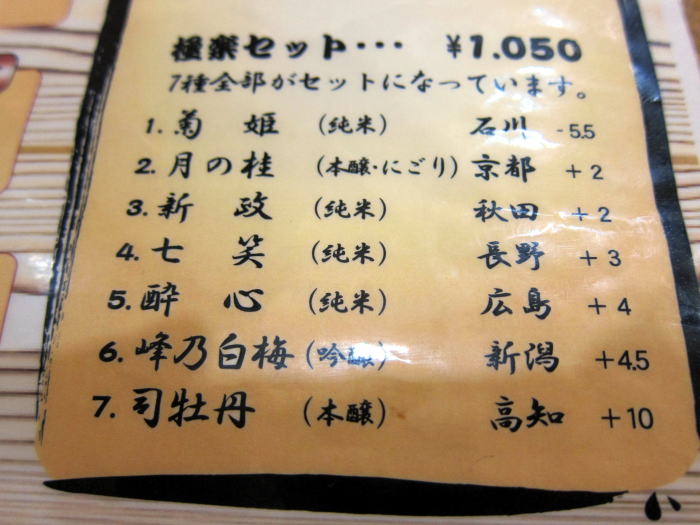 極楽セット･･･ ¥1.050
7種全部がセットになっています。
1. 菊 姫 (純米) 石川 -5.5
2. 月の桂 (本醸·にごり) 京都 +2
3. 新 政 (純米) 秋田 +2
4. 七 笑 (純米) 長野 +3
5. 酔 心 (純米) 広島 +4
6. 峰乃白梅 (吟醸) 新潟 +4.5
7. 司牡丹 (本醸) 高知 +10